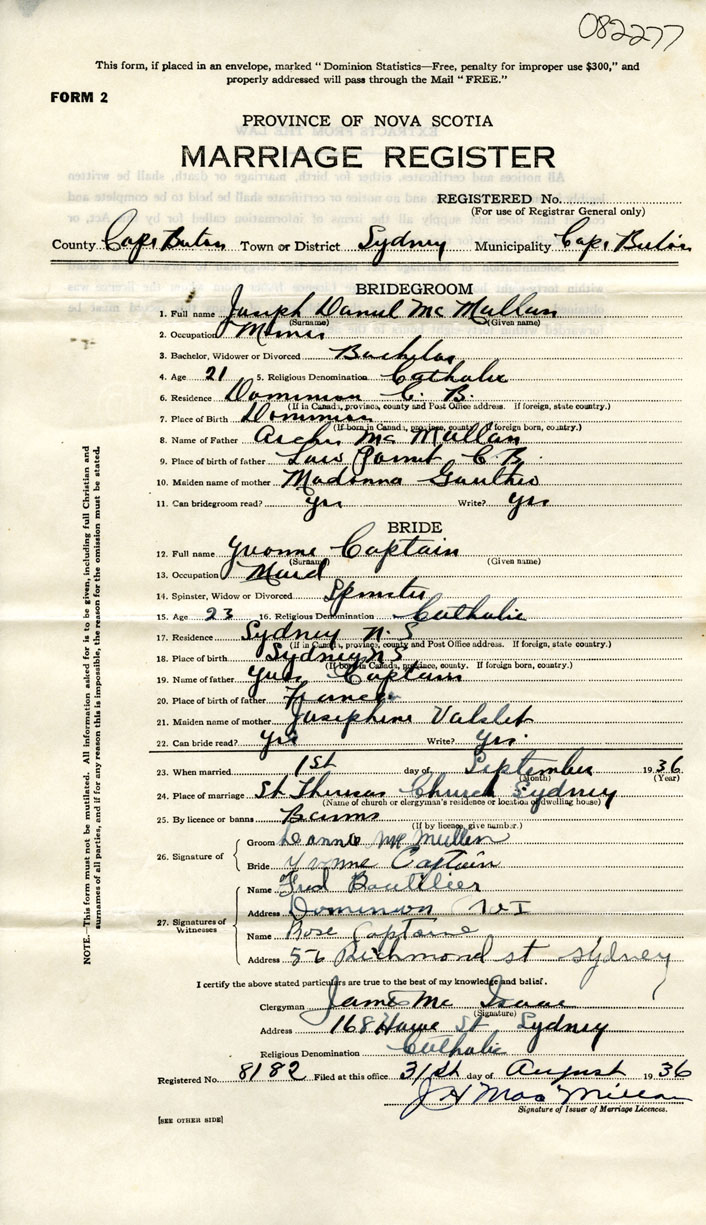 082277
This form, if placed in an envelope, marked "Dominion Statistics—Free, penalty for improper use $300," and
properly addressed will pass through the Mail "FREE."
FORM 2
PROVINCE OF NOVA SCOTIA
MARRIAGE REGISTER
REGISTERED No.
(For use of Registrar General only)
County Cape Breton Town or District Sydney Municipality Cape Breton
BRIDEGROOM
1. Full name Joseph Daniel Mc Mullan
(Surname) (Given name)
2. Occupation Miner
3. Bachelor, Widower or Divorced Bachelor
4. Age 21 5. Religious Denomination Catholic
6. Residence Dominion C. B.
(If in Canada, province, county and Post Office address. If foreign, state country.)
7. Place of Birth Dominion
(If born in Canada, province, county. If foreign born, country.)
8. Name of Father Archie Mc Mullan
9. Place of birth of father Low Point C B.
10. Maiden name of mother Madonna
11. Can bridegroom read? Yes Write? Yes
BRIDE
12. Full name Yvonne Captain
(Surname) (Given name)
13. Occupation Maid
14. Spinster, Widow or Divorced Spinster
15. Age 23 16. Religious Denomination Catholic
17. Residence Sydney N. S
(If in Canada, province, county and Post Office address. If foreign, state country.)
18. Place of birth Sydney N S
(If born in Canada, province, county. If foreign born, country.)
19. Name of father Captain
20. Place of birth of father France
21. Maiden name of mother Josephine Valslet
22. Can bride read? Yes Write? Yes.
23. When married 1st day of September 1936
(Month) (Year)
24. Place of marriage St. Theresas Church Sydney
(Name of church or clergyman's residence or location of dwelling house)
25. By licence or banns Banns
(If by licence, give number.)
26. Signature of
Groom Dannie Mc Mullen
Bride Yvonne Captain
27. Signatures of Witnesses
Name Fred Boutilier
Address Dominion
Name Rose Captaine
Address 56 Richmond st Sydney
I certify the above stated particulars are true to the best of my knowledge and belief.
Clergyman James Mc Isaac
(Signature)
Address 168 Howe St. Sydney
Religious Denomination Catholic
Registered No. 8182 Filed at this office 31st day of August 1936
J H MacMillan
Signature of Issuer of Marriage Licences.
[SEE OTHER SIDE]
NOTE.—This form must not be mutilated. All information asked for is to be given, including full Christian and
surnames of all parties, and if for any reason this is impossible, the reason for the omission must be stated.